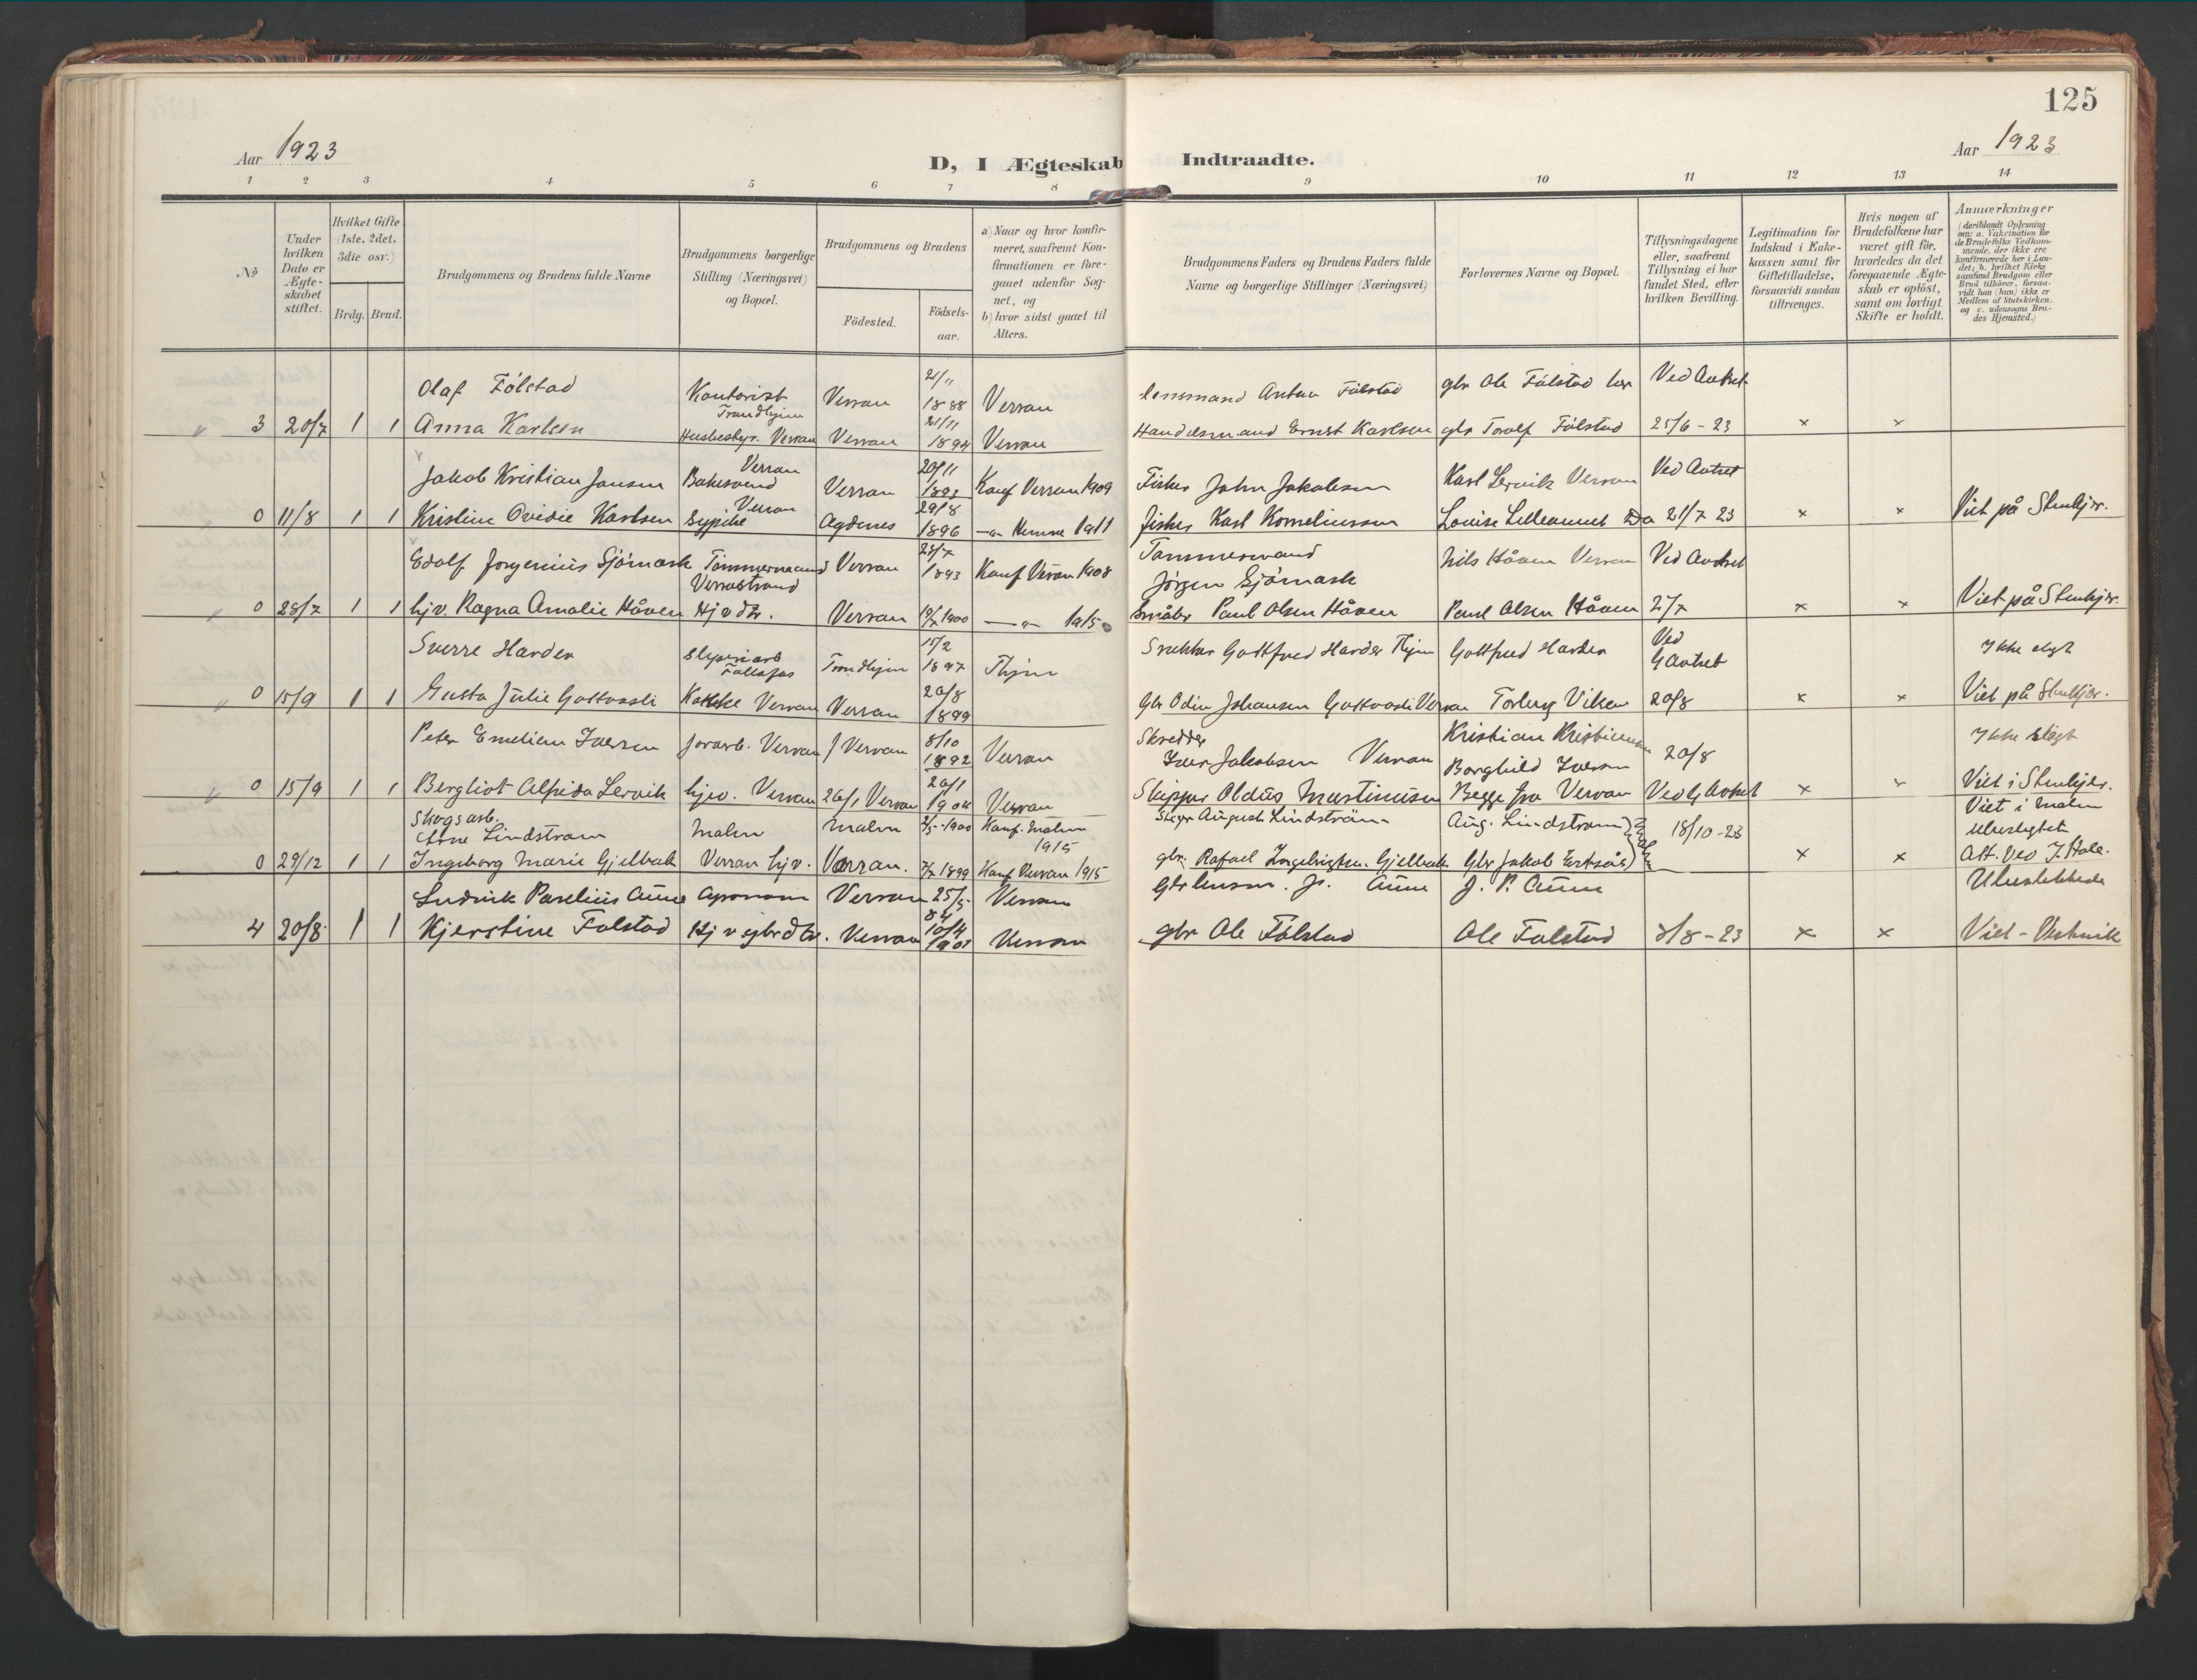 125
Aar 1923
D, I Ægteskab Indtraadte.
Aar 1923
1 2 3 4 5 6 7 8 9 10 11 12 13 14
№
Under hvilken Dato er Ægteskabet stiftet.
Hvilket Gifte (1ste, 2det, 3die osv.)
Brdg. Brud.
Brudgommens og Brudens fulde Navne
Brudgommens borgerlige Stilling (Næringsvei) og Bopæl.
Brudgommens og Brudens
Födested.
Födselsaar.
a) Naar og hvor konfirmeret, saafremt Konfirmationen er foregaaet udenfor Sognet, og
b) hvor sidst gaaet til Alters.
Brudgommens Faders og Brudens Faders fulde Navne og borgerlige Stillinger (Næringsvei)
Forlovernes Navne og Bopæl.
Tillysningsdagene eller, saafremt Tillysning ei har fundet Sted, efter hvilken Bevilling.
Legitimation for Indskud i Enkekassen samt for Giftetilladelse, forsaavidt saadan tiltrænges.
Hvis nogen af Brudefolkene har været gift för, hvorledes da det foregaaende Ægteskab er oplöst, samt om lovligt Skifte er holdt.
Anmærkninger
(deriblandt Oplysning om: a. Vakcination for de Brudefolks Vedkommende, der ikke ere konfirmerede her i Landet; b. hvilket Kirkesamfund Brudgom eller Brud tilhörer, forsaavidt han (hun) ikke er Medlem af Statskirken. og c. udensogns Brudes Hjemsted.)
Olaf Fölstad Kontorist Trondhjem Verran 21/11 1888 Verran lensmand Anton Fölstad gbr Ole Fölstad Ved Avtret
3 20/7 1 1 Anna Karlsen Husbestyr. Verran Verran 21/11 1894 Verran Handelsmand Ernst Karlsen gbr Torolf Fölstad 25/6-23 × ×
Jakob Kristian Jansen Verran Verran 20/11 1893 Konf Verran 1909 Fisker John Jakobsen Karl Lervik Verran Ved Avtret
0 11/8 1 1 Kristine Ovidie Karlsen Sypike Verran Agdenes 29/8 1896 -"- Hemne 1911 fisker Karl Korneliussen Do 21/7 23 × × Viet på Stenkjer.
Edolf Jørgenius Sjömark Tömmermand Verrastrand Verran 1893 Konf Verran 1908 Jörgen Sjömark Nils Håven Verran Ved Avtret
0 28/7 1 1 hjv. Ragna Amalie Håven Hjv dtr. Verran 1900 -"- 1915 Småbr Paul Olsen Håven Paul Olsen Håven 2/7 × × Viet på Stenkjer.
Sverre Harder Sliperiarb Follafos Trondhjem 15/2 1897 Thjem Snekker Gottfred Harder Thjem Gottfred Harder Ved G Avtret Ikke slegt
0 15/9 1 1 Gusta Julie Gottvasli Kokke Verran Verran 20/8 1899 Gbr Odin Johansen Gottvasli Verran Torberg Viken 20/8 × × Viet på Stenkjer.
Peter Emelius Iversen Jorarb. Verran Verran 8/10 1892 Verran Skredder Iver Jakobsen Verran Kristian Kristiansen Borghild Iversen 20/8 Ikke slegt
0 15/9 1 1 Bergliot Alfrida Lervik hjv. Verran 26/1 Verran 26/1 1904 Verran Skipper Oldus Martinusen Begge fra Verran Ved G Avtret × × Viet i Stenkjer.
Skogsarb. Arne Lindstrøm Malm Malm 1900 Konf. Malm 1915 August Lindström Aug. Lindström 18/10-23 Viet i Malm
0 29/12 1 1 Ingeborg Marie Gjelbak Verran hjv. Verran. 1899 Konf Verran 1915 gbr. Rafael Ingebrigtsn. Gjelbak Gbr Jakob × × Att. ved J. Hall.
Ludvik Parelius Aune Agronom Verran 25/5 84 Verran Gbr Aune J. P. Aune
4 20/8 1 1 Kjerstine Folstad Hjv gbrdtr. Verran 10/4 1903 Verran gbr Ole Fölstad Ole Folstad 8/8-23 × × Viet - Vestvik